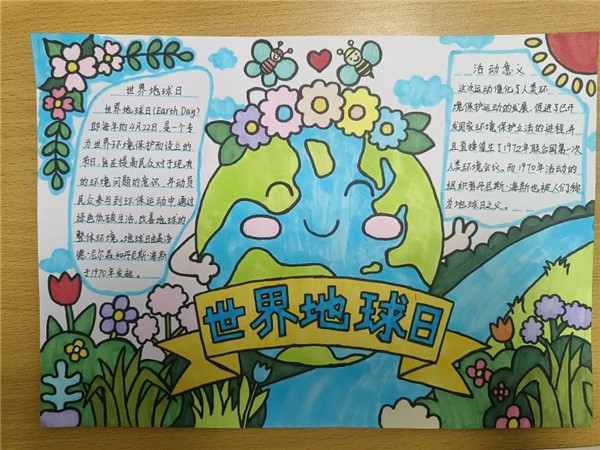 世界地球日
世界地球日(Earth Day)
即每年的4月22日,是一个专
为世界环境保护而设立的
节日,旨在提高民众对于现有
的环境问题的意识,并动员
民众参与到环保运动中,通过
绿色低碳生活,改善地球的
整体环境。地球日由盖洛
德·尼尔森和丹尼斯·海斯
于1970年发起。
活动意义
这次运动催化了人类环
境保护运动的发展,促进了已开
发国家环境保护立法的进程,并
且直接催生了1972年联合国第一次
人类环境会议。而1970年活动的
组织者丹尼斯·海斯也被人们称
为地球日之父。
世界地球日